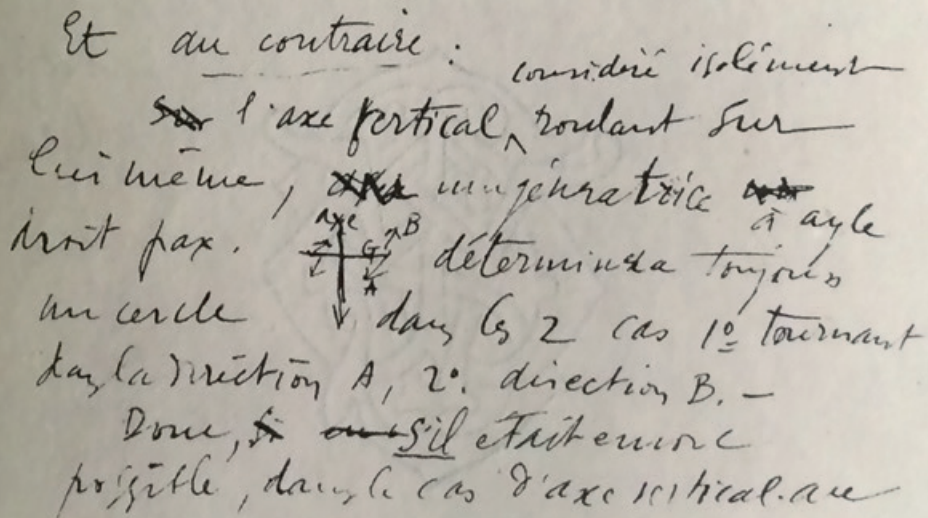 Et au contraire :
considéré isolément
l'axe vertical, roulant sur
lui même, une génératrice à angle
droit par.
axe
G B
A
déterminera toujours
un cercle dans les 2 cas 1º tournant
dans la direction A, 2º. direction B. –
Donc, s'il était encore
possible, dans le cas d'axe vertical. au